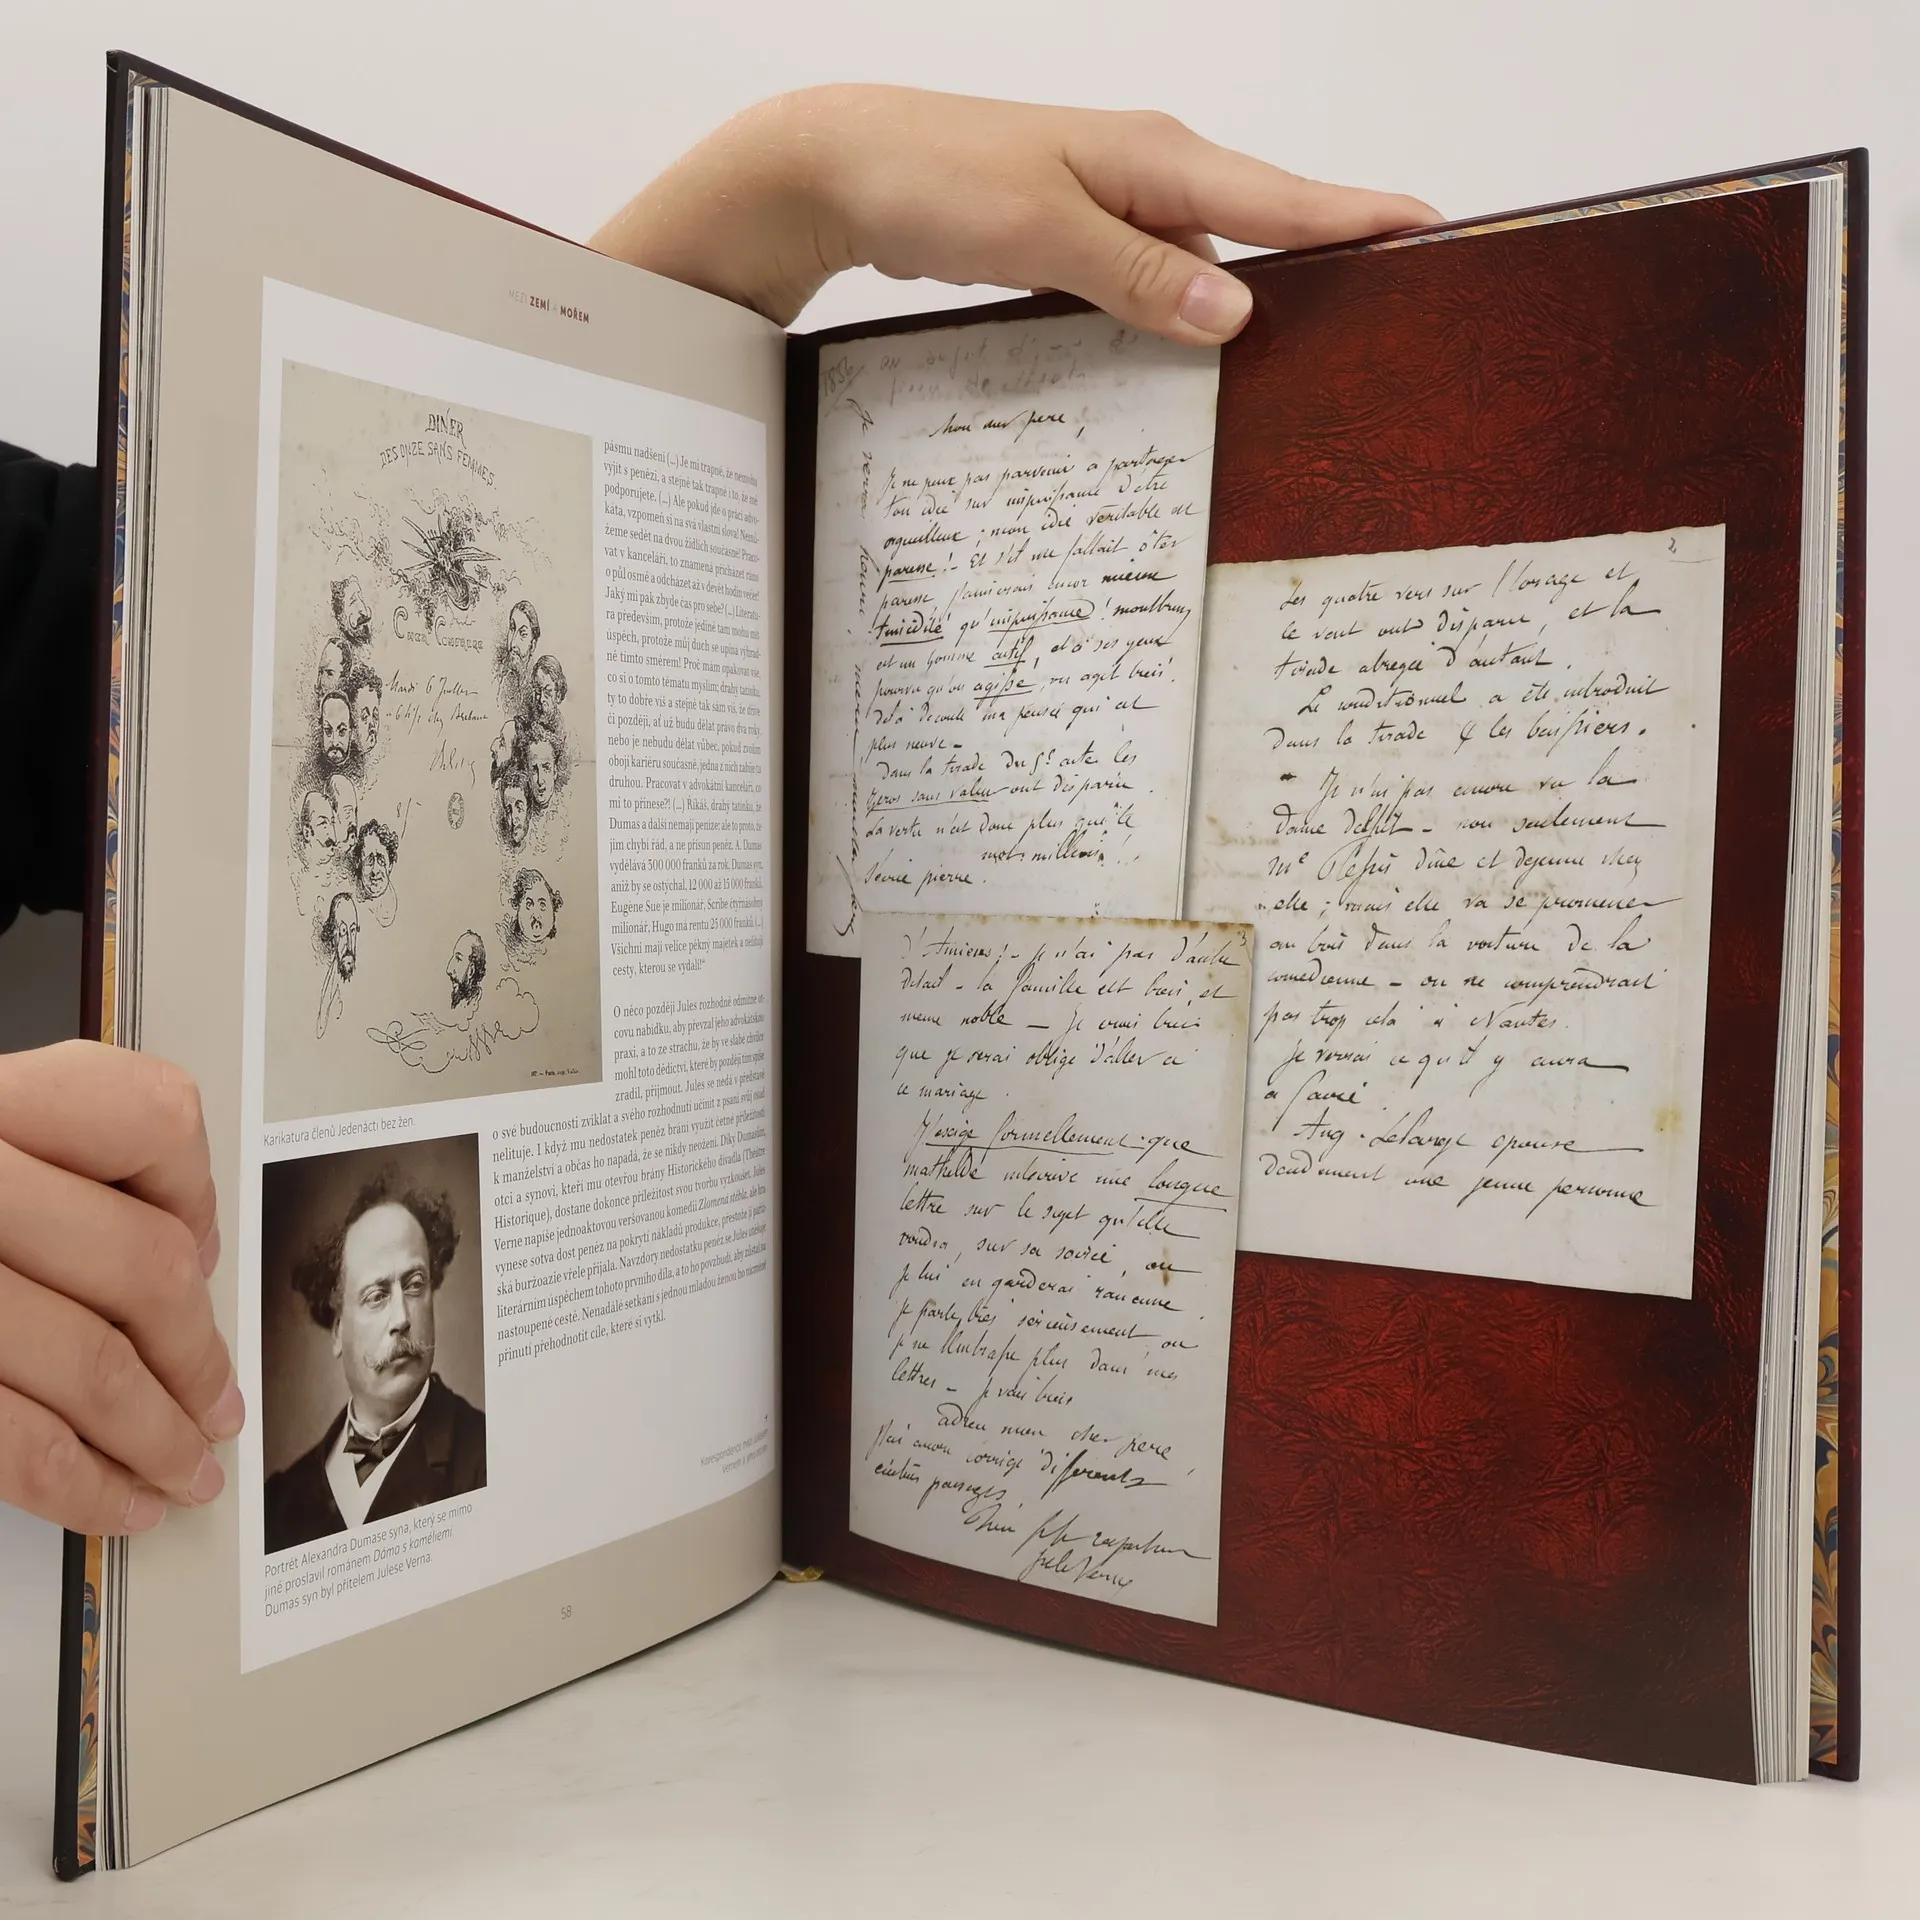 MEZI ZEMÍ A MOŘEM
DINER
DES ONZE SANS FEMMES
Mardi 6 Juillet
Karikatura členů Jedenácti bez žen.
pásmu nadšení (...) Je mi trapné, že nemohu
vyjít s penězi, a stejně tak trapné i to, že mě
podporujete. (...) Ale pokud jde o práci advo-
káta, vzpomeň si na svá vlastní slova! Nemů-
žeme sedět na dvou židlích současně! Praco-
vat v kanceláři, to znamená přicházet ráno
o půl osmé a odcházet až v devět hodin večer!
Jaký mi pak zbyde čas pro sebe? (...) Literatu-
ra především, protože jedině tam mohu mít
úspěch, protože můj duch se upíná výhrad-
ně tímto směrem! Proč mám opakovat vše,
co si o tomto tématu myslím; drahý tatínku,
ty to dobře víš a stejně tak sám víš, že dříve
či později, ať už budu dělat právo dva roky,
nebo je nebudu dělat vůbec, pokud zvolím
obojí kariéru současně, jedna z nich zabije tu
druhou. Pracovat v advokátní kanceláři, co
mi to přinese?! (...) Říkáš, drahý tatínku, že
Dumas a další nemají peníze: ale to proto, že
jim chybí řád, a ne přísun peněz. A. Dumas
vydělává 300 000 franků za rok, Dumas syn,
aniž by se ostýchal, 12 000 až 15 000 franků,
Eugène Sue je milionář, Scribe čtyřnásobný
milionář, Hugo má rentu 25 000 franků. (...)
Všichni mají velice pěkný majetek a nelitují
cesty, kterou se vydali!“
O něco později Jules rozhodně odmítne ot-
covu nabídku, aby převzal jeho advokátskou
praxi, a to ze strachu, že by ve slabé chvilce
mohl toto dědictví, které by později tím spíše
zradil, přijmout. Jules se nedá v představě
o své budoucnosti zviklat a svého rozhodnutí učinit z psaní svůj osud
nelituje. I když mu nedostatek peněz brání využít četné příležitosti
k manželství a občas ho napadá, že se nikdy neožení. Díky Dumasům,
otci a synovi, kteří mu otevřou brány Historického divadla (Théâtre
Historique), dostane dokonce příležitost svou tvorbu vyzkoušet. Jules
Verne napíše jednoaktovou veršovanou komedii Zlomená stébla, ale hra
vynese sotva dost peněz na pokrytí nákladů produkce, přestože ji paříž-
ská buržoazie vřele přijala. Navzdory nedostatku peněz se Jules
literárním úspěchem tohoto prvního díla, a to ho povzbudí, aby zůstal na
nastoupené cestě. Nenadálé setkání s jednou mladou ženou ho nicméně
přinutí přehodnotit cíle, které si vytkl.
Portrét Alexandra Dumase syna, který se mimo
jiné proslavil románem Dáma s kaméliemi.
Dumas syn byl přítelem Julese Verna.
Korespondence mezi Julesem
Vernem a jeho otcem.
58
1856
Mon cher père,
Je ne peux pas parvenir a partager
ton idée sur impuissance d'être
orgueilleux ; mon idée véritable est
paresse ! - Et s'il me fallait ôter
paresse, j'aimerais encor mieux
timidité qu'impuissance !
est un homme actif, et à ses yeux
pourvu qu'on agisse, on agit bien !
delà découle ma pensée qui est
plus neuve -
Dans la tirade du 5e acte les
zeros sans valeur ont disparu.
La vertu n'est donc plus que le
mot millions !
pierre.
2
Les quatre vers sur l'orage et
le vent ont disparu, et la
tirade abregée d'autant.
Le conditionnel a été introduit
dans la tirade
Je n'ai pas encore vu la
dame - non seulement
dîne et dejeune chez
elle ; mais elle va se promener
au bois dans la voiture de la
comedienne - on ne comprendrait
pas trop cela à Nantes.
Je verrai ce qu'il y aura
a faire
Aug. Lelarge epouse
une jeune personne
3
d'Amiens ! - je n'ai pas d'autre
détail - la famille est bien, et
meme noble - Je crois bien
que je serai obligé d'aller a
ce mariage.
J'exige formellement que
mathilde m'écrive une longue
lettre sur le sujet qu'elle
voudra, sur sa soirée, ou
je lui en garderai rancune
je parle très serieusement ou
je ne l'embrasse plus dans mes
lettres - je vais bien
adieu mon cher père
j'ai encor corrigé differents
passages
Ton fils respectueux
Jules Verne